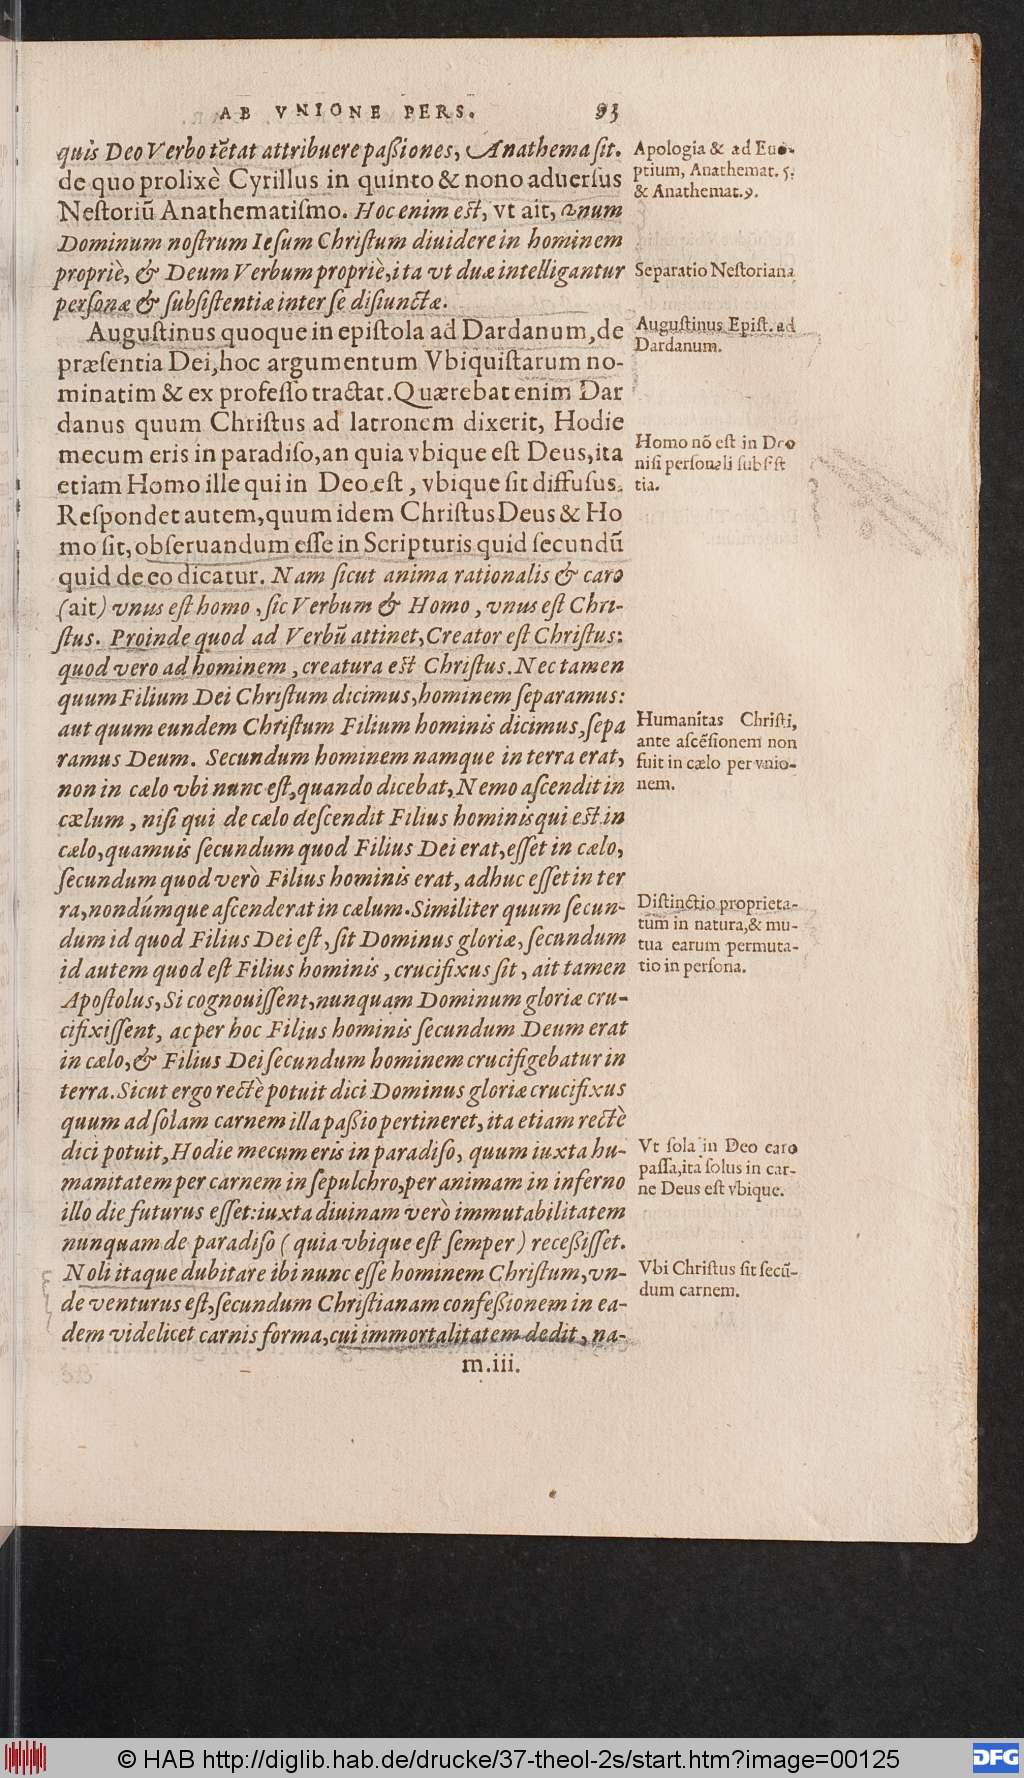 AB VNIONE PERS. 93
quis Deo Verbo tẽtat attribuere paßiones, Anathema sit.
de quo prolixè Cyrillus in quinto & nono aduersus
Nestoriũ Anathematismo. Hoc enim est, vt ait, vnum
Dominum nostrum Iesum Christum diuidere in hominem
propriè, & Deum Verbum propriè, ita vt duæ intelligantur
personæ & subsistentiæ inter se disiunctæ.
Augustinus quoque in epistola ad Dardanum, de
præsentia Dei, hoc argumentum Vbiquistarum no-
minatim & ex professo tractat. Quærebat enim Dar
danus quum Christus ad latronem dixerit, Hodie
mecum eris in paradiso, an quia vbique est Deus, ita
etiam Homo ille qui in Deo est, vbique sit diffusus.
Respondet autem, quum idem Christus Deus & Ho
mo sit, obseruandum esse in Scripturis quid secundũ
quid de eo dicatur. Nam sicut anima rationalis & caro
(ait) vnus est homo, sic Verbum & Homo, vnus est Chri-
stus. Proinde quod ad Verbũ attinet, Creator est Christus:
quod vero ad hominem, creatura est Christus. Nec tamen
quum Filium Dei Christum dicimus, hominem separamus:
aut quum eundem Christum Filium hominis dicimus, sepa
ramus Deum. Secundum hominem namque in terra erat,
non in cælo vbi nunc est, quando dicebat, Nemo ascendit in
cælum, nisi qui de cælo descendit Filius hominis qui est in
cælo, quamuis secundum quod Filius Dei erat, esset in cælo,
secundum quod verò Filius hominis erat, adhuc esset in ter
ra, nondúmque ascenderat in cælum. Similiter quum secun-
dum id quod Filius Dei est, sit Dominus gloriæ, secundum
id autem quod est Filius hominis, crucifixus sit, ait tamen
Apostolus, Si cognouissent, nunquam Dominum gloriæ cru-
cifixissent, ac per hoc Filius hominis secundum Deum erat
in cælo, & Filius Dei secundum hominem crucifigebatur in
terra. Sicut ergo rectè potuit dici Dominus gloriæ crucifixus
quum ad solam carnem illa paßio pertineret, ita etiam rectè
dici potuit, Hodie mecum eris in paradiso, quum iuxta hu-
manitatem per carnem in sepulchro, per animam in inferno
illo die futurus esset: iuxta diuinam verò immutabilitatem
nunquam de paradiso (quia vbique est semper) receßisset.
Noli itaque dubitare ibi nunc esse hominem Christum, vn-
de venturus est, secundum Christianam confeßionem in ea-
dem videlicet carnis forma, cui immortalitatem dedit, na-
m.iii.
Apologia & ad Euo-
ptium, Anathemat. 5.
& Anathemat. 9.
Separatio Nestoriana
Augustinus Epist. ad
Dardanum.
Homo nõ est in Deo
nisi personali subsist
tia.
Humanitas Christi,
ante ascẽsionem non
fuit in cælo per vnio-
nem.
Distinctio proprieta-
tum in natura, & mu-
tua earum permuta-
tio in persona.
Vt sola in Deo caro
passa, ita solus in car-
ne Deus est vbique.
Vbi Christus sit secũ-
dum carnem.
© HAB http://diglib.hab.de/drucke/37-theol-2s/start.htm?image=00125
DFG